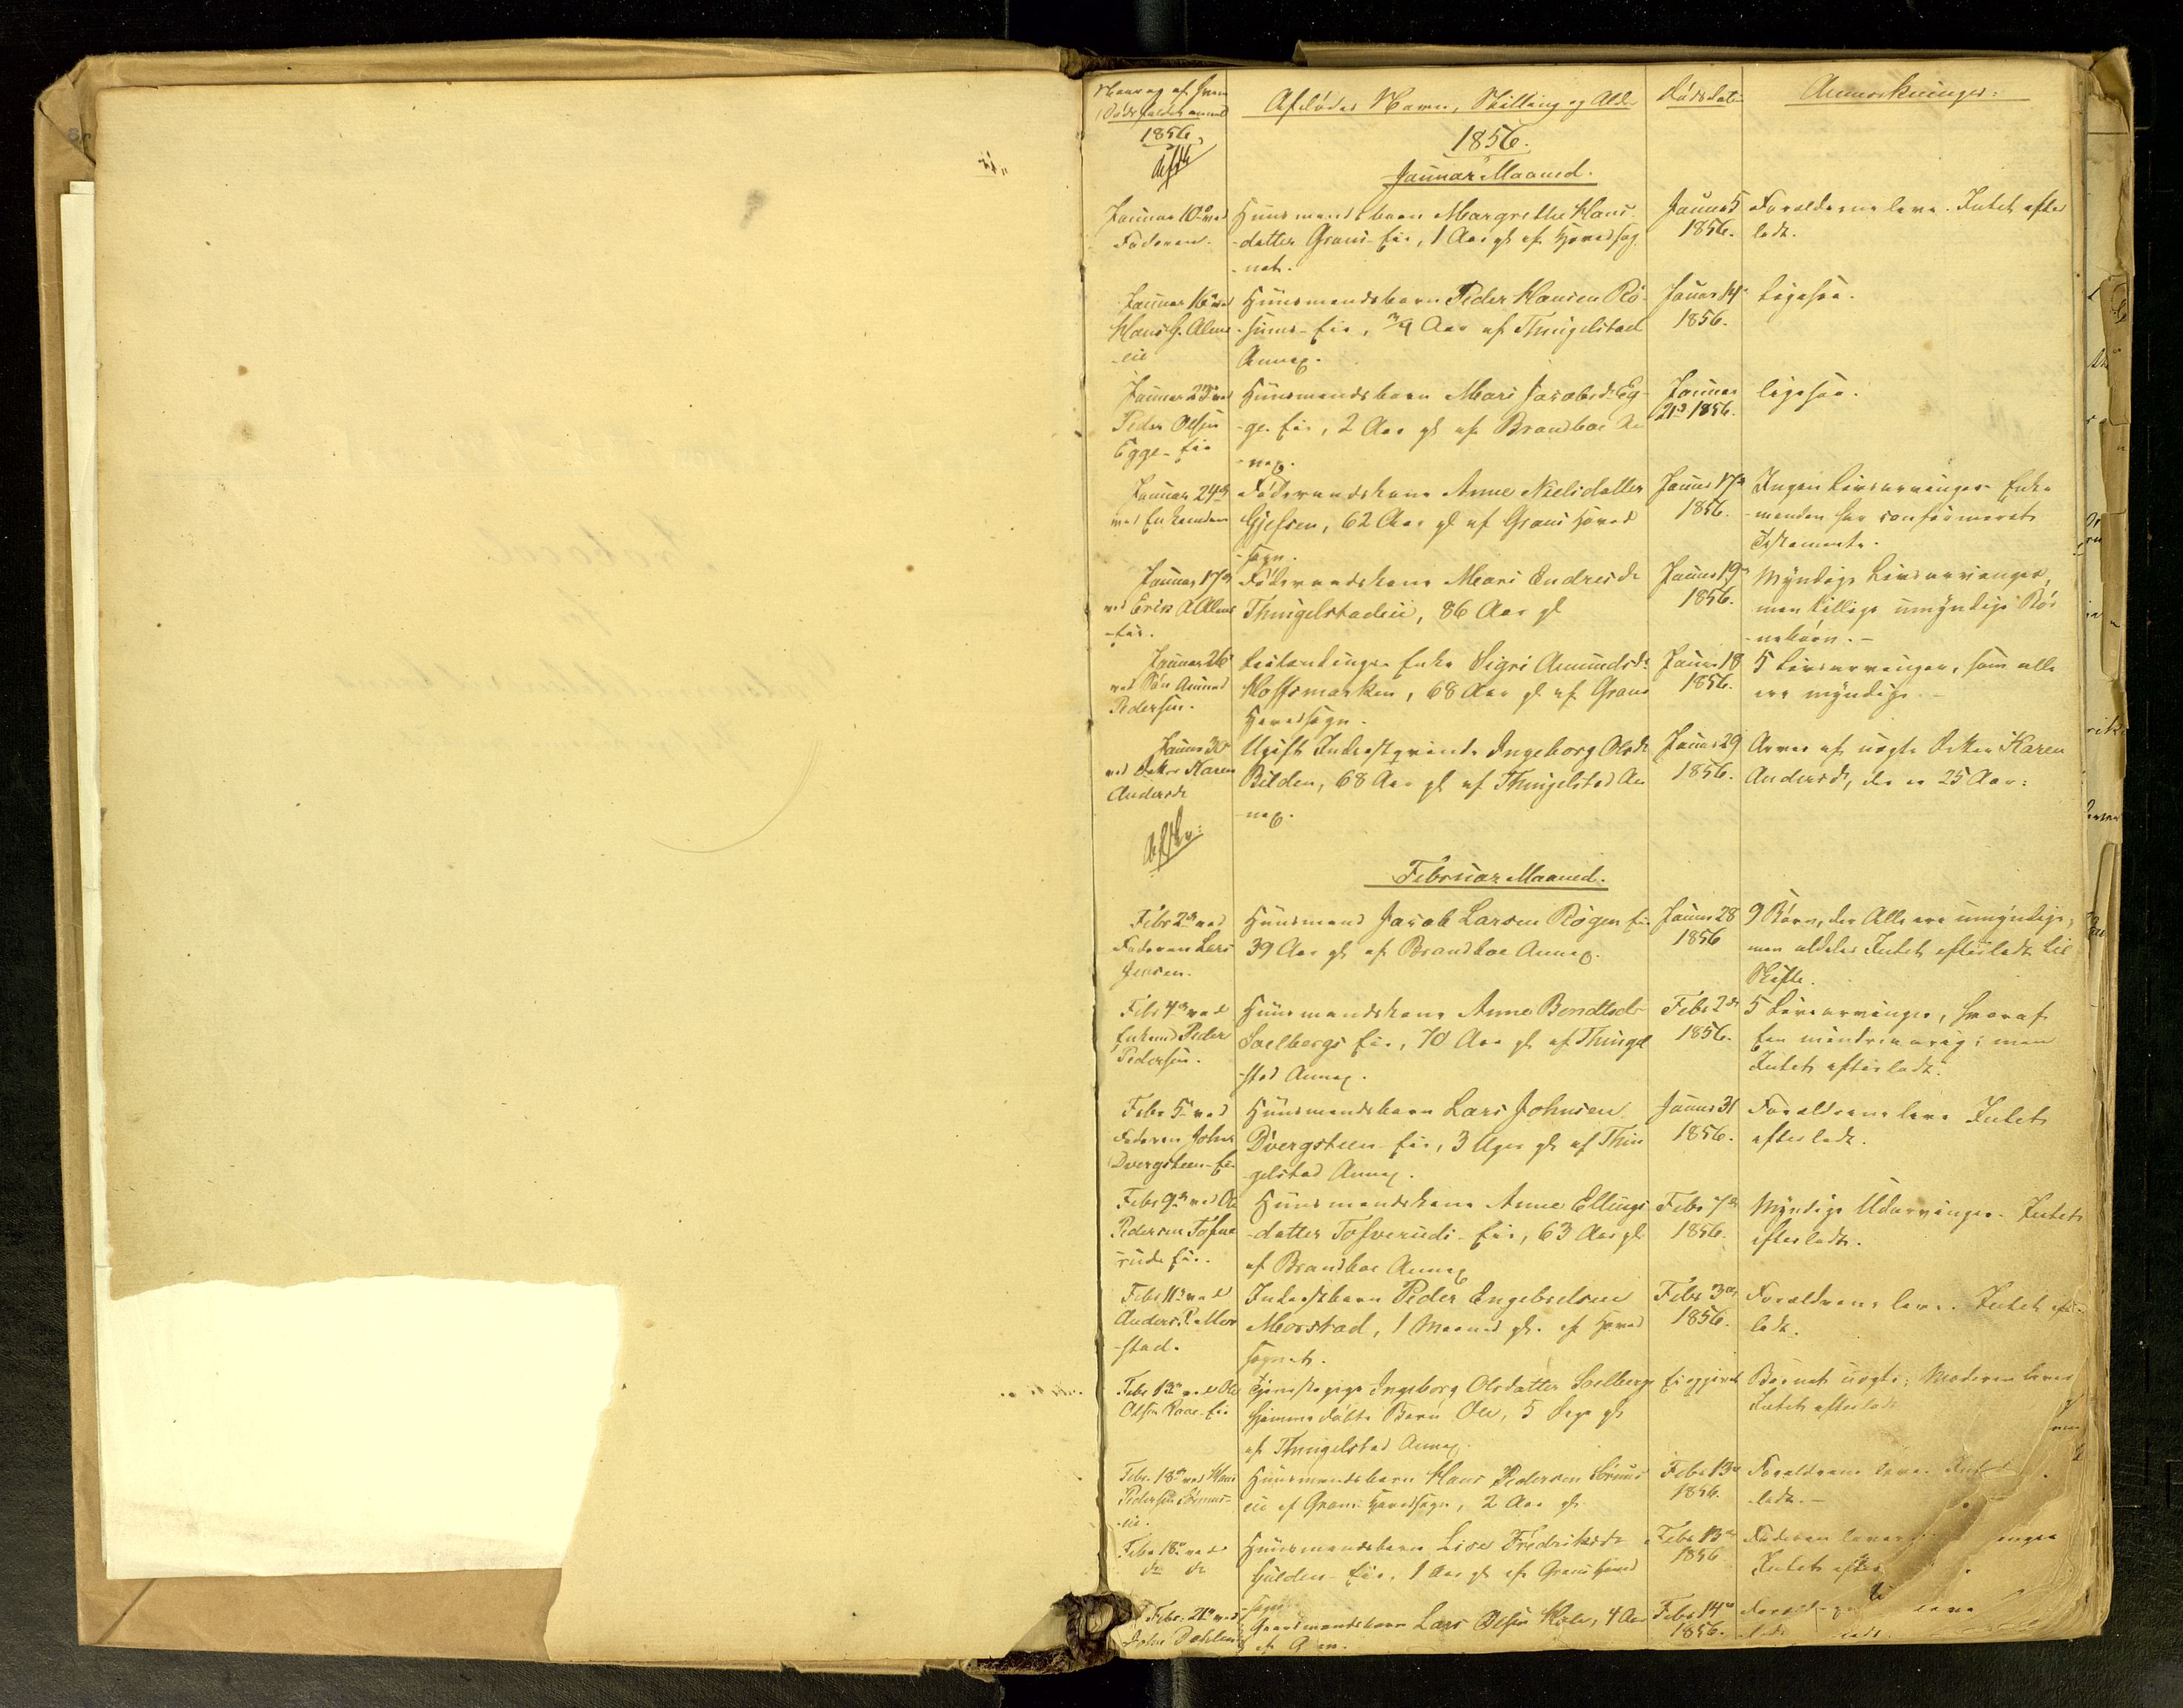 Naar og af hvem
Dødsfaldet anmeldt
Afdødes Navn, Stilling og Alder
Dødsdatum
Anmærkninger:
1856
1856.
Januar Maaned.
Januar 10de ved
Faderen.
Huusmandsbarn Margrethe Hans-
-datter Grans-Eie, 1 Aar gl. af Hovedsog-
-net.
Januar 5
1856.
Forældrene leve. Intet efter
ladt.
Januar 16de ved
Hans G. Alms
-eie
Huusmandsbarn Peder Hansen Rø-
-Eie, Aar af Thingelstad
Annex.
Januar 14
1856.
Ligesaa.
Januar 23de ved
Peder Olsen
Egge-Eie
Huusmandsbarn Mari Jacobsdr Eg-
-ge-Eie, 2 Aar gl. af Brandboe An
-nex.
Januar
21de 1856.
ligesaa.
Januar 24de
ved Enkemanden
Føderaadskone Anne Nielsdatter
Gjefsen, 62 Aar gl. af Grans Hoved
-sogn.
Januar 17de
1856.
Ingen Livsarvinger Enke
-manden har confirmeret
Testamente.
Januar 17de
ved Erik A Alms
-Eie.
Føderaadskone Mari Endresdr
Thingelstadeie, 86 Aar gl
Januar 19de
1856.
Myndige Livsarvinger,
men tillige umyndige Bør
-nebørn.-
Januar 26
ved Søn Amund
Pedersen.
Enke Sigri Amundsdr
Hoffsmarken, 68 Aar gl. af Grans
Hovedsogn.
Januar 18
1856.
5 Livsarvinger, som alle
ere myndige.-
Januar 30
ved Datter Karen
Andersdr
Ugift Inderstqvinde Ingeborg Olsdr
Bilden, 68 Aar gl. af Thingelstad An
-nex.
Januar 29
1856.
Arves af uægte Datter Karen
Andersdr, der er 25 Aar:
Februar Maaned.
Febr 2de ved
Faderen Lars
Jensen.
Huusmand Jacob Larsen Røgen Eie
39 Aar gl. af Brandboe Annex.
Januar 28
1856
9 Børn, der Alle ere umyndige,
men aldeles Intet efterladt til
Skifte.
Febr 4de ved
Enkemd Peder
Pedersen.
Huusmandskone Anne Bendtsdr
Soelbergs Eie, 70 Aar gl. af Thingel
-stad Annex.
Febr 2de
1856.
5 Livsarvinger, hvoraf
Een mindreaarig; men
Intet efterladt.
Febr 5te ved
Faderen Johns
Dvergsteen-Eie
Huusmandsbarn Lars Johnsen
Dvergsteen-Eie, 3 Uger gl. af Thin
-gelstad Annex.
Januar 31
1856.
Forældrene leve Intet
efterladt.
Febr 9de ved Ole
Pedersen Tofve
ruds Eie.
Huusmandskone Anne Ellings
-datter Tofveruds-Eie, 63 Aar gl
af Brandboe Annex
Febr 7de
1856.
Myndige Udarvinger. Intet
efterladt.
Febr 11te ved
Anders P. Mor
-stad.
Inderstbarn Peder Engebretsen
Morstad, 1 Maaned gl. af Hoved
sognet.
Febr 3die
1856.
Forældrene leve. Intet efter
ladt.
Febr 13de ved Ole
Olsen Raae-Eie
Tjenestepige Ingeborg Olsdatter Soelbergs
hjemmedøbte Barn Ole, 5 Dage gl
af Thingelstad Annex.
Ei opgivet
Barnet uægte; Moderen lever
Intet efterladt
Febr. 18de ved Hans
Pedersen Sørums-
-eie.
Huusmandsbarn Hans Pedersen Sørums
eie af Grans Hovedsogn, 2 Aar gl.
Febr 13de
1856.
Forældrene leve. Intet
-ladt.-
Febr 18de ved
do do
Huusmandsbarn Lise Fredriksdr
Hulden-Eie, 1 Aar gl. af Grans Hoved
-sogn
Febr 13de
1856
Faderen lever
Intet efter
Febr. 21de ved
John Dæhlen
Gaardmandsbarn Lars Olsen, 4 Aar
Febr 14de
1856.
leve